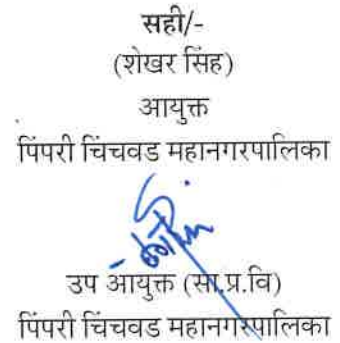 सही/-
(शेखर सिंह)
आयुक्त
पिंपरी चिंचवड महानगरपालिका
उप आयुक्त (सा.प्र.वि)
पिंपरी चिंचवड महानगरपालिका